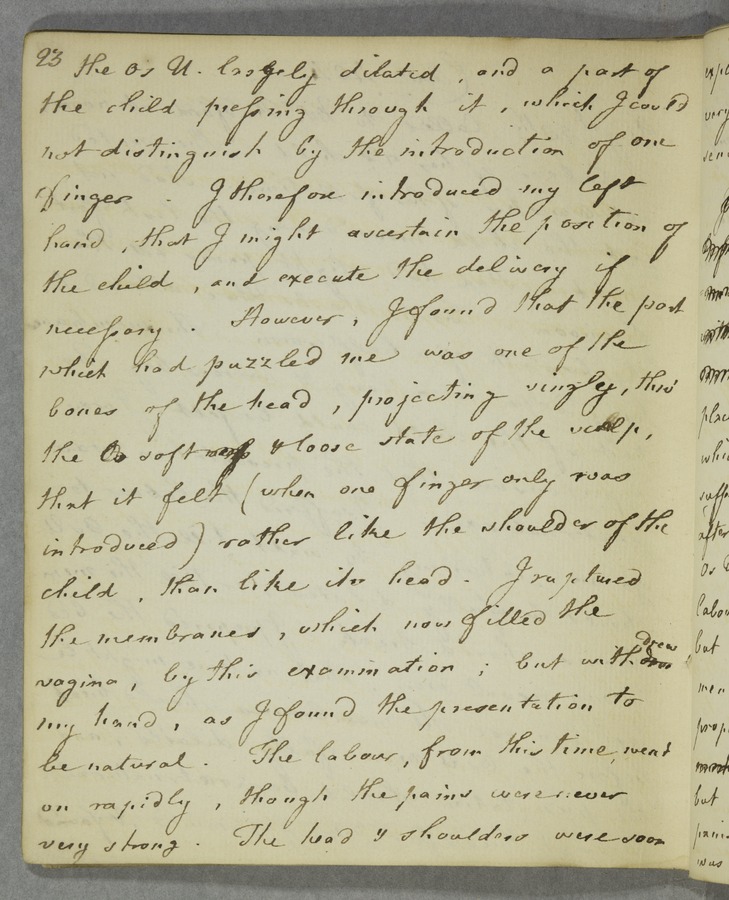 23 the Os U. largely dilated, and a part of
the child pressing through it, which I could
not distinguish by the introduction of one
finger. I therefore introduced my left
hand, that I might ascertain the position of
the child, and execute the delivery if
necessary. However, I found that the part
which had puzzled me was one of the
bones of the head, projecting singly, thro'
the soft & loose state of the scalp,
that it felt (when one finger only was
introduced) rather like the shoulder of the
child, than like its head. I ruptured
the membranes, which now filled the
vagina, by this examination; but withdrew
my hand, as I found the presentation to
be natural. The labour, from this time, went
on rapidly, though the pains were never
very strong. The head & shoulders were soon
expl
very
plac
whic
suff
after
Os
labou
but
men
prop
but
pain
was